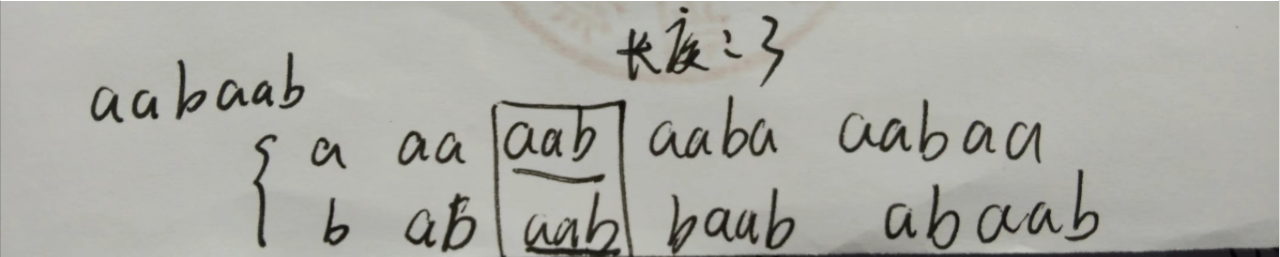 长度:3
aabaab
a aa aab aaba aabaa
b ab aab baab abaab